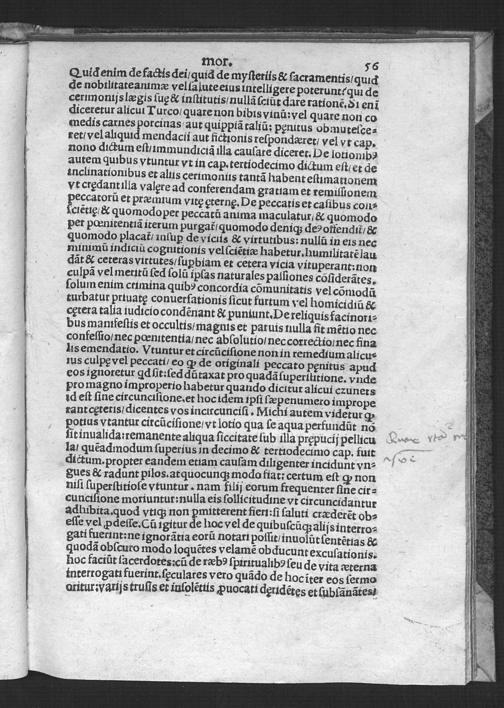 mor.
56
Quid enim de factis dei/quid de mysteriis & sacramentis/quid
de nobilitate animæ vel salute eius intelligere poterunt/qui de
cerimonijs lęgis suę & institutis/nullā sciūt dare rationē. Si eni
diceretur alicui Turco/quare non bibis vinū:vel quare non co
medis carnes porcinas/aut quippiā taliū; pęnitus obmutesce-
ret/vel aliquid mendacii aut fictionis respondæret/vel vt cap.
nono dictum est/immundiciā illa causare diceret. De lotionibꝰ
autem quibus vtuntur vt in cap. tertiodecimo dictum est/et de
inclinationibus et aliis cerimoniis tantā habent estimationem
vt crędant illa valęre ad conferendam gratiam et remissionem
peccatorū et præmium vitę ęternę. De peccatis et casibus con-
sciētię/& quomodo per peccatū anima maculatur/& quomodo
per pœnitentiā iterum purgat̄/quomodo deniqꝫ deꝰ offendit̄/&
quomodo placat̄/insup de viciis & virtutibus: nullū in eis nec
minimū indiciū cognitionis vel sciētiæ habetur. humilitatē lau
dāt & ceteras virtutes/supbiam et cetera vicia vituperant: non
culpā vel meritū sed solū ipsas naturales passiones cōsiderātes.
solum enim crimina quibꝰ concordia cōmunitatis vel cōmodū
turbatur priuatę conuersationis sicut furtum vel homicidiū &
cętera talia iudicio condēnant & puniunt. De reliquis facinori-
bus manifestis et occultis/magnis et paruis nulla fit mētio nec
confessio/nec pœnitentia/nec absolutio/nec correctio/nec fina
lis emendatio. Vtuntur et circūcisione non in remedium alicu-
ius culpę vel peccati/eo ꝙ de originali peccato pęnitus apud
eos ignoretur qd sit: sed dūtaxat pro quadā superstitione. vnde
pro magno improperio habetur quando dicitur alicui czunets
id est sine circuncisione. et hoc idem ipsi sæpenumero imprope
rant cęteris/dicentes vos incircuncisi. Michi autem videtur ꝙ
potius vtantur circūcisione/vt lotio qua se aqua perfundūt nō
sit inualida: remanente aliqua siccitate sub illa prępucij pellicu
la/quēadmodum superius in decimo & tertiodecimo cap. fuit
dictum. propter eandem etiam causam diligenter incidunt vn-
gues & radunt pilos. at quocunqꝫ modo fiat: certum est ꝙ non
nisi superstitiose vtuntur. nam filij eorum frequenter sine cir-
cuncisione moriuntur: nulla eis sollicitudine vt circuncidantur
adhibita. quod vtiqꝫ non pmitterent fieri: si saluti crædrēt ob-
esse vel pdesse. Cū igitur de hoc vel de quibuscūqꝫ alijs interro-
gati fuerint: ne ignorātia eorū notari possit/inuolūt sentētias &
quodā obscuro modo loquētes velamē obducunt excusationis.
hoc faciūt sacerdotes: cū de ræbꝰ spiritualibꝰ seu de vita æterna
interrogati fuerint. sęculares vero quādo de hoc iter eos sermo
oritur: varijs trusis et insolētiis puocati dęridētes et subsānātes/